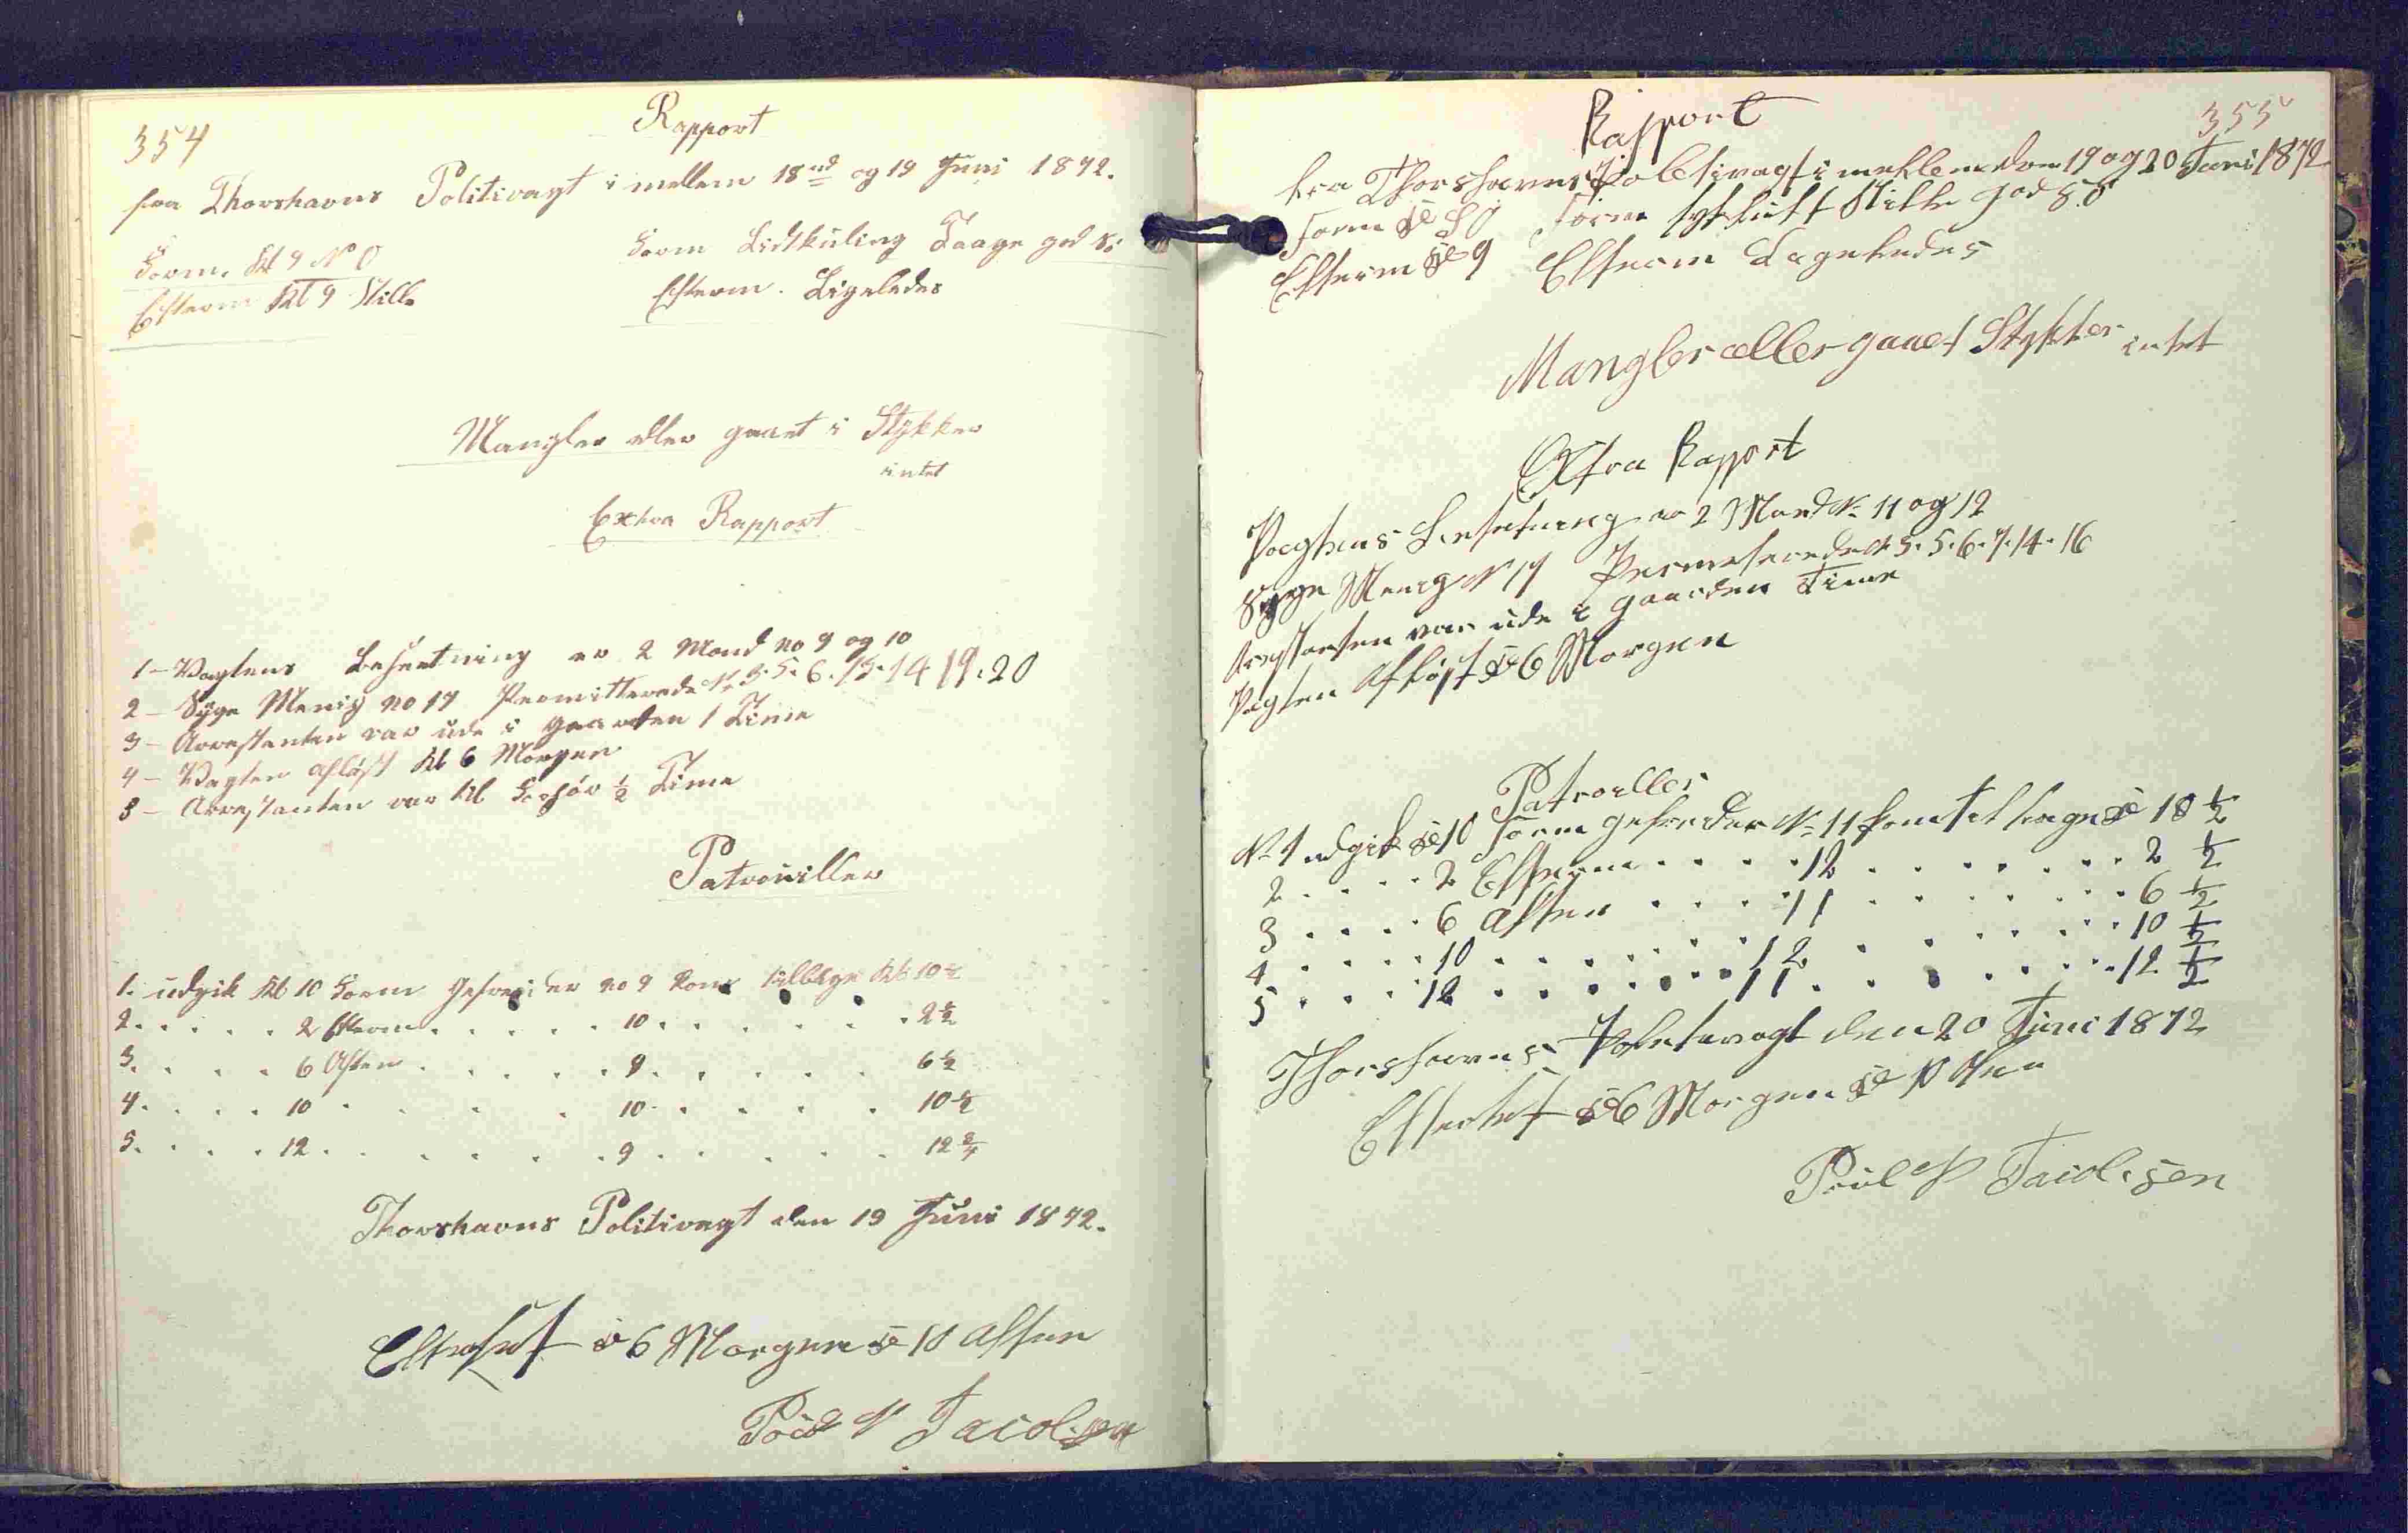 354
Rapport
fra Thorshavns Politivagt i mellem 18nd og 19 Juni 1872.
Form. Kl 9 N O
Form Lidtkuling Taage god S:
Efterm Kl 9 Stille
Efterm. Ligeledes
Mangler eller gaaet i Stykker
intet
Extra Rapport
1 - Vagtens Besætning er 2 Mand no 9 og 10
2 - Syge Menig no 17 Permitterede N. 3. 5. 6. 13. 14 19. 20
3 - Arrestanten var ude i Gaarden 1 Time
4 - Vagten afløst Kl 6 Morgen
5 - Arrestanten var til Forhør ½ Time
Patrouiller
1. udgik Kl 10 Form Gefreider no 9 kom tilbage Kl 10½
2. . . . . 2 Efterm. . . . . 10. . . . . . 2½
3. . . . 6 Aften . . . . . 9. . . . . 6½
4. . . . 10 . . . . 10. . . . . 10½
5. . . . 12. . . . . . 9. . . . . 12¾
Thorshavns Politivagt den 19 Juni 1872.
Efterset Kl 6 Morgen Kl 10 Aften
Poul N Jacobsen
355
Rapport
fra Thorshavns Politivagt i mellem den 19 og 20 Juni 1872
Form Kl 9 Form tyk luft Stille god S:
Efterm Kl 9 Efterm Ligeledes
Mangler eller gaaet Stykker intet
Extra Rapport
Vagtens Besetning er 2 Mand N. 11 og 12
Syge Menig N 17 Permeterede N 3. 5. 6. 7. 14. 16
Arrestanten var ude i Gaarden Time
Vagten Afløst Kl 6 Morgen
Patroller
N. 1 udgik Kl 10 Form Gefreider N. 11 kom tilbage Kl 10 ½
2 . . . . 2 Efterm . . . . 12 . . . . . . . 2 ½
3 . . . . 6 Aften . . . . 11 . . . . . . . 6 ½
4 . . . . 10 . . . . . . . 12 . . . . . . . 10 ½
5 . . . 12 . . . . . . . 11 . . . . . . . 12 ½
Thorshavns Poletivagt den 20 Juni 1872
Efterset Kl 6 Morgen Kl 10 Aten
Poul N Jacobsen